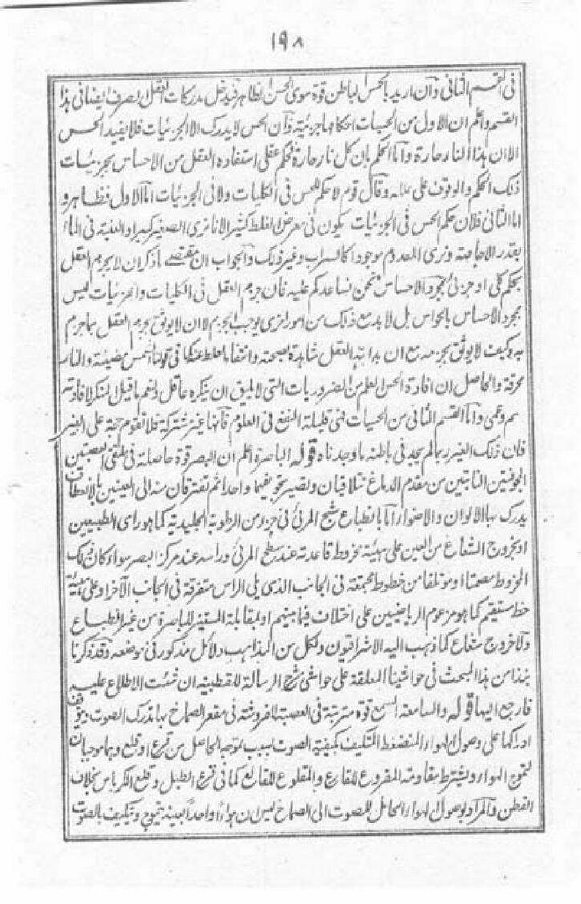 ١٩٨
فى القسم الثانى وان اريد بالحس الباطن قوة سوى الحس الظاهر فيدخل مدركات العقل الصرف ايضا فى هذا
القسم واعلم ان الاول من الحسيات احكامها جزئية وان الحس لا يدرك الا الجزئيات فلا يفيد الحس
الا ان هذا النار حارة واما الحكم بان كل نار حارة فحكم عقلى استفاده العقل من الاحساس بجزئيات
ذلك الحكم والوقوف على علله وقال قوم لا حكم للحس فى الكليات ولا فى الجزئيات اما الاول فظاهر و
اما الثانى فلان حكم الحس فى الجزئيات يكون فى معرض الغلط كثيرا لانا نرى الصغير كبيرا والعنبة فى الماء
بقدر الاجاصة ونرى المعدوم موجودا كالسراب وغير ذلك والجواب ان مقتضى ما ذكر ان لا يجزم العقل
بحكم كلى او جزئى بمجرد الاحساس ونحن نساعدكم عليه فان جزم العقل فى الكليات والجزئيات ليس
بمجرد الاحساس بالحواس بل لا بد مع ذلك من امور اخرى يوجب الجزم لا ان لا يوثق بجزم العقل بما جزم
به وكيف لا يوثق بجزمه مع ان بداهة العقل شاهدة بصحته وانتفاء الغلط عنه كما فى قولنا الشمس مضيئة والنار
محرقة والحاصل ان افادة الحس العلم من الضروريات التى لا يليق ان ينكره عاقل
واما القسم الثانى من الحسيات فهى قليلة النفع فى العلوم فانها غير مشتركة فلا تقوم حجة على الغير
فان ذلك الغير ربما لم يجد فى باطنه ما وجدناه قوله الباصرة اعلم ان البصر قوة حاصلة فى ملتقى العصبتين
المجوفتين النابتين من مقدم الدماغ تتلاقيان ويصير تجويفهما واحدا ثم تفترقان منه الى العينين
يدرك بها الالوان والاضواء اما بانطباع شبح المرئى فى جزء من الرطوبة الجليدية كما هو راى الطبيعيين
او بخروج الشعاع من العين على هيئة مخروط قاعدته عند سطح المرئى وراسه عند مركز البصر سواء كان ذلك
المخروط مصمتا او مؤتلفا من خطوط مجتمعة فى الجانب الذى يلى الراس متفرقة فى الجانب الآخر او على هيئة
خط مستقيم كما هو مزعوم الرياضيين على اختلاف فيما بينهم او بمقابلة المستنير للباصرة من غير انطباع
ولا خروج شعاع كما ذهب اليه الاشراقيون ولكل من المذاهب دلائل مذكورة فى موضعه وقد ذكرنا
نبذا من هذا البحث فى حواشينا المعلقة على حواشى شرح الرسالة القطبية ان شئت الاطلاع عليه
فارجع اليها قوله والسامعة السمع قوة مترتبة فى العصبة المفروشة فى مقعر الصماخ بها تدرك الصوت ويتوقف
ادراكها على وصول الهواء المنضغط المتكيف بكيفية الصوت بسبب تموجه الحاصل من قرع او قلع وهما موجبان
لتموج الهواء ويشترط مقاومة المقروع للقارع والمقلوع للقالع كما فى قرع الطبل وقلع الكرباس بخلاف
القطن والمراد بوصول الهواء الحامل للصوت الى الصماخ ليس ان هواء واحدا بعينه يتموج ويتكيف بالصوت